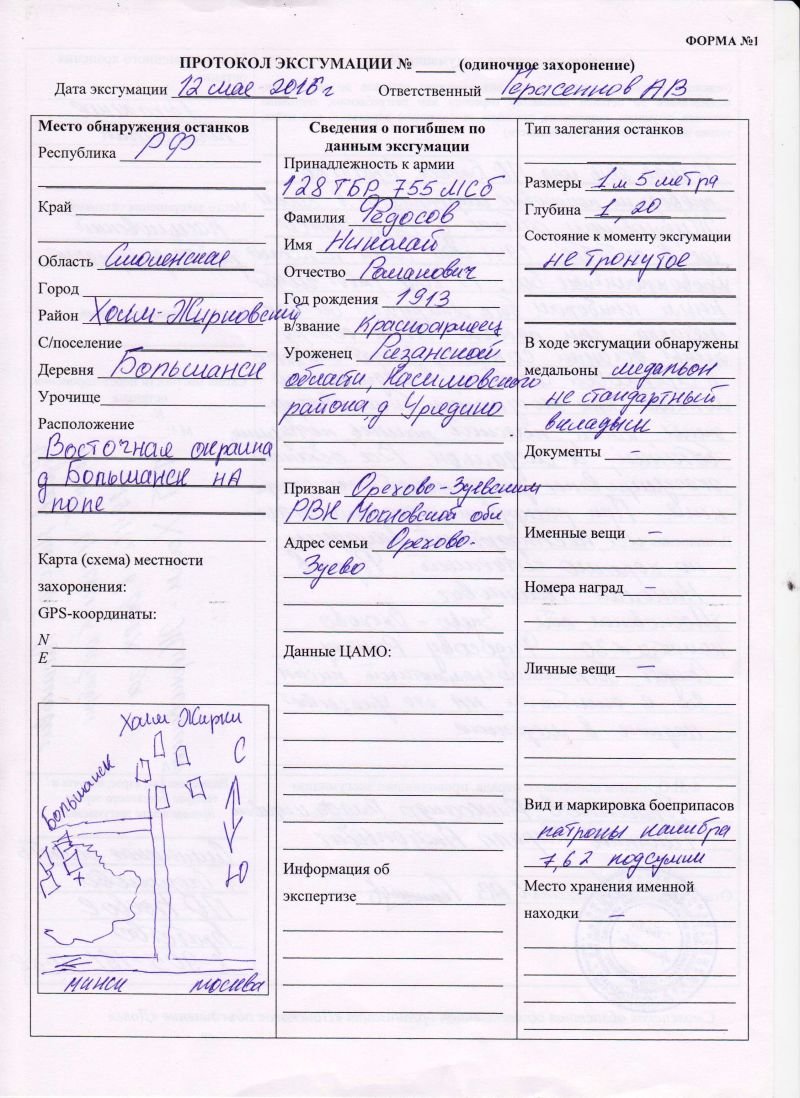 ФОРМА №1
ПРОТОКОЛ ЭКСГУМАЦИИ № _____ (одиночное захоронение)
Дата эксгумации 12 мае 2015 г Ответственный Герасеннов А В
Место обнаружения останков
Республика РФ
Край
Область Смоленская
Город
Район Холм-Жирковский
С/поселение
Деревня Большанск
Урочище
Расположение
Восточная окраина
д Большанск на
поле
Карта (схема) местности
захоронения:
GPS-координаты:
N
E
Холм Жирки
С
Большанск
Ю
минск москва
Сведения о погибшем по
данным эксгумации
Принадлежность к армии
128 ТБР 755 МСБ
Фамилия Федосов
Имя Николай
Отчество Романович
Год рождения 1913
в/звание Красноармеец
Уроженец Рязанской
области, Касимовского
района д Урядино
Призван Орехово-Зуевским
РВК Московской обл
Адрес семьи Орехово-
Зуево
Данные ЦАМО:
Информация об
экспертизе
Тип залегания останков
Размеры 1 м 5 метра
Глубина 1,20
Состояние к моменту эксгумации
не тронутое
В ходе эксгумации обнаружены
медальоны медальон
не стандартный
вкладыш
Документы –
Именные вещи –
Номера наград –
Личные вещи –
Вид и маркировка боеприпасов
патроны калибра
7,62 подсумки
Место хранения именной
находки –